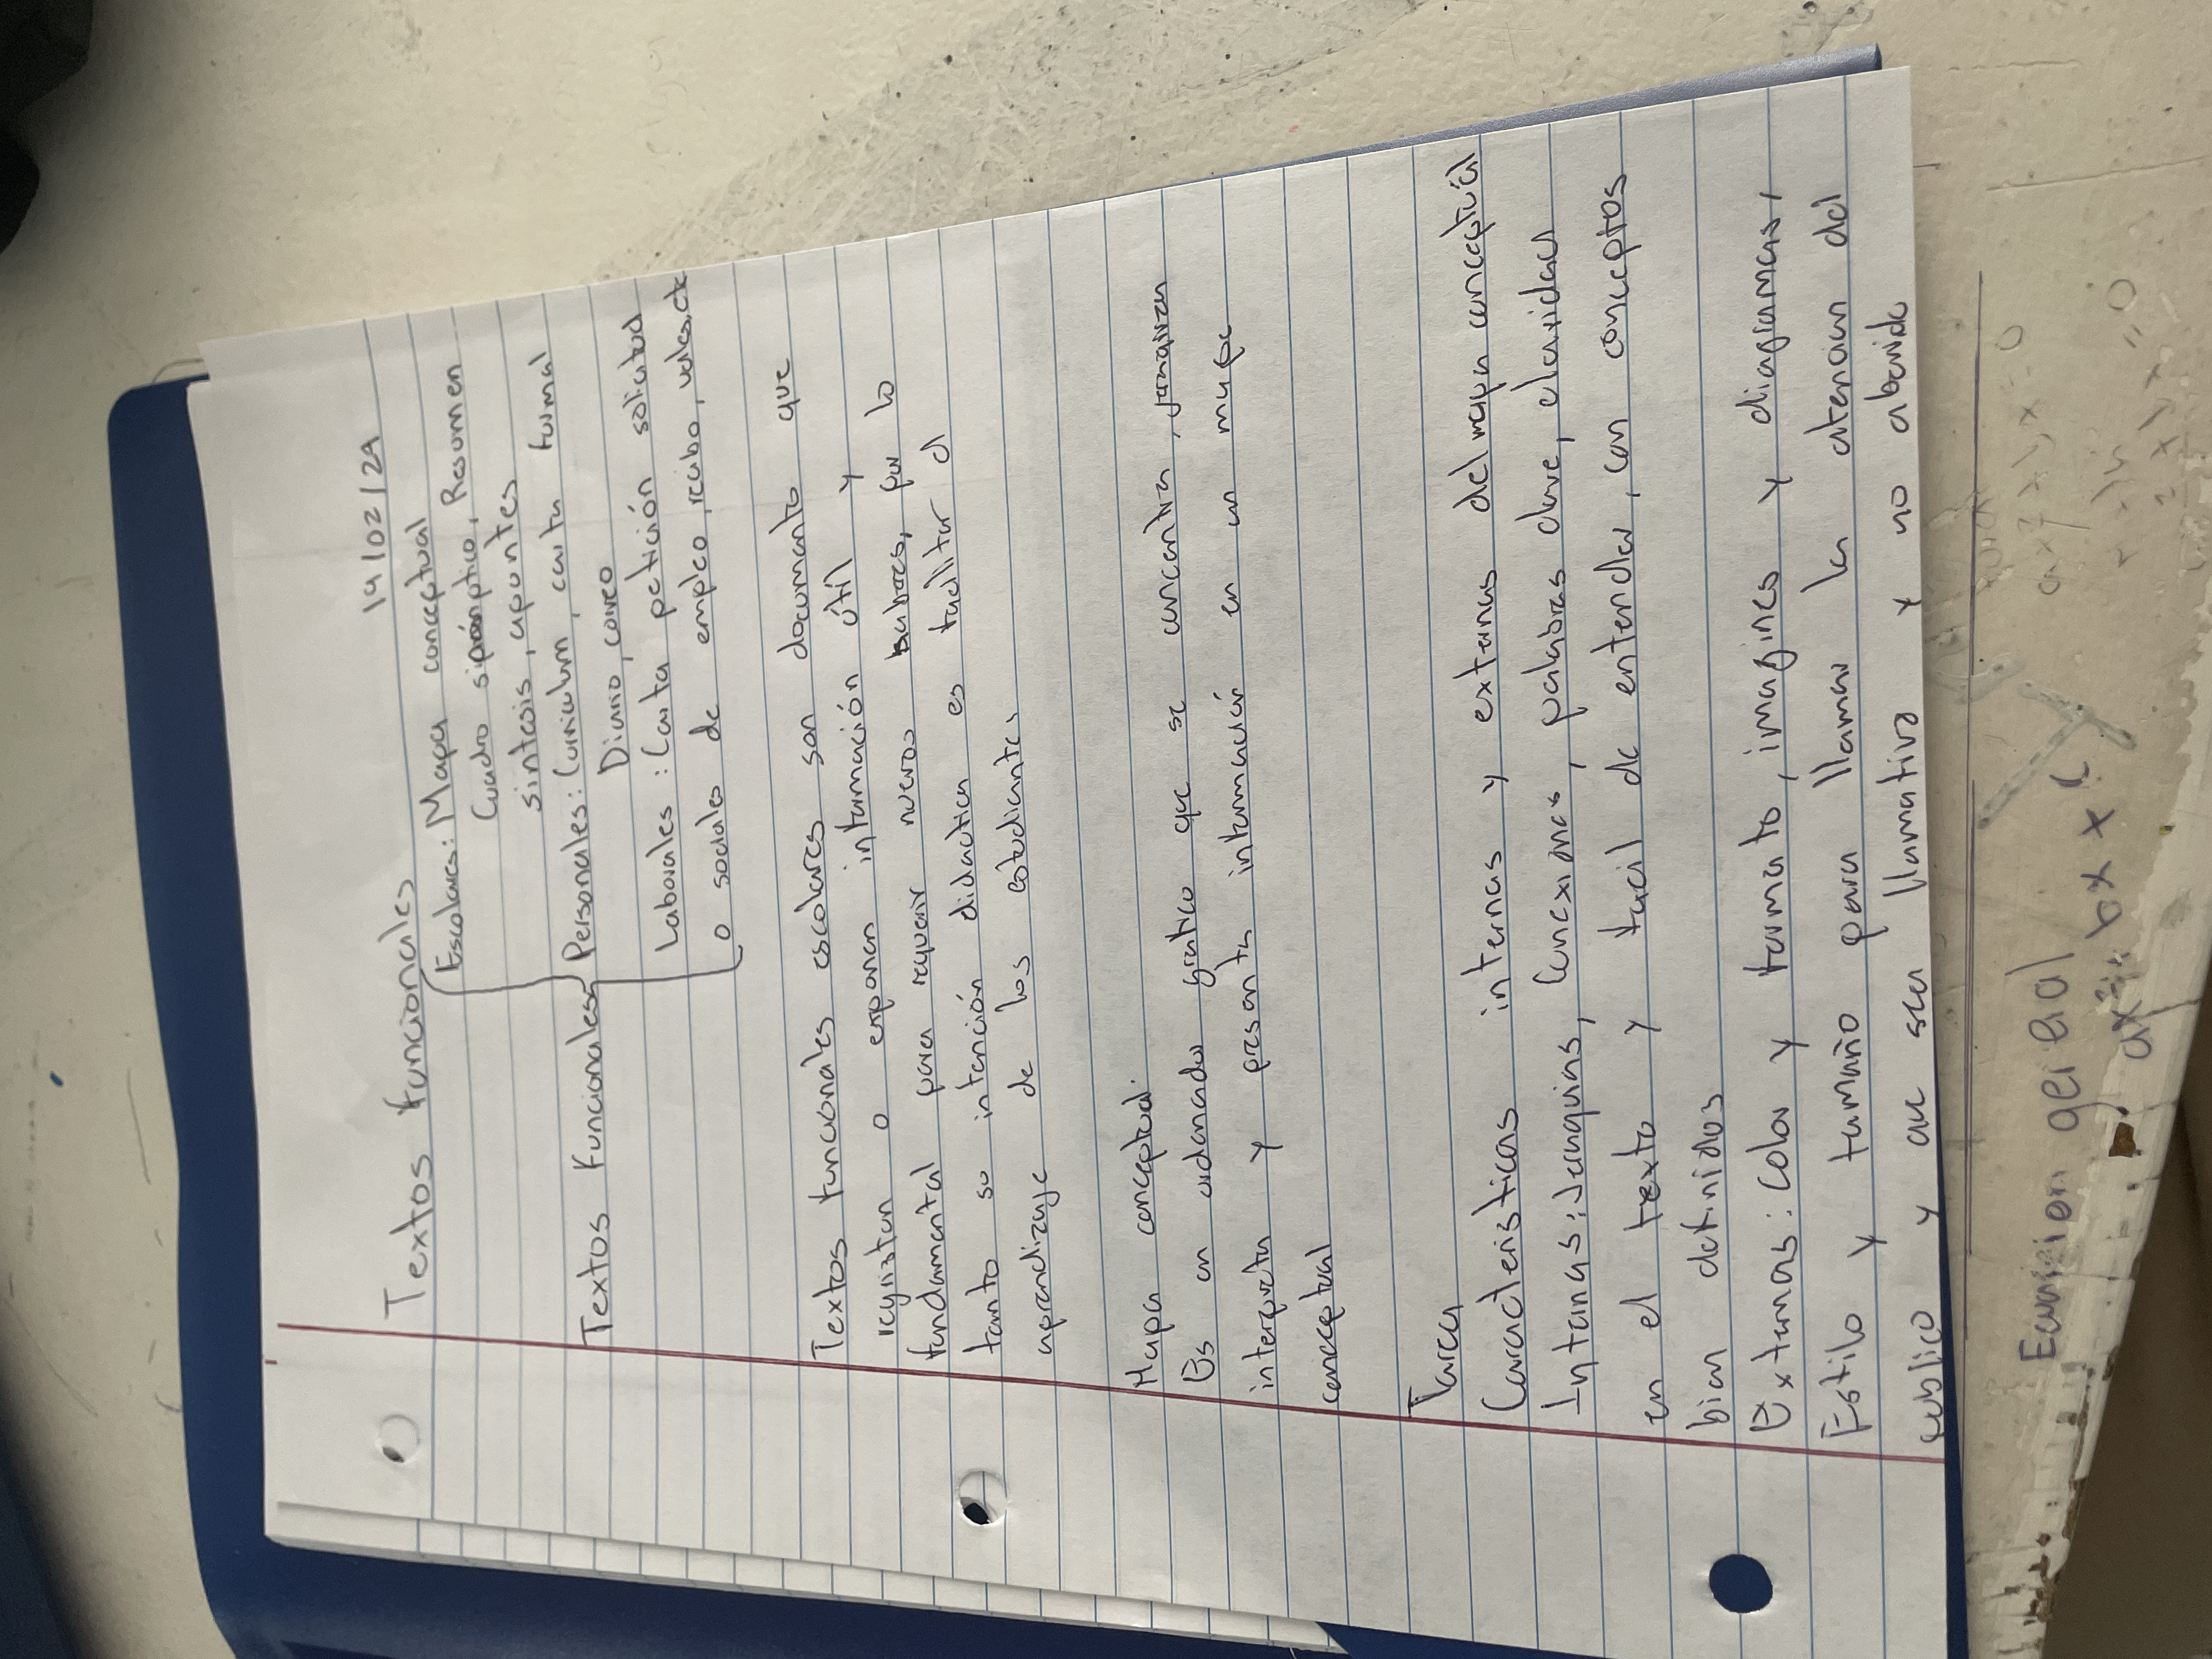 19/02/24
Textos funcionales
Escolares: Mapa conceptual
Cuadro sinóptico, Resumen
sintesis, apuntes
Textos Funcionales Personales: Curriculum, carta formal
Diario, correo
Laborales : Carta petición solicitud
o sociales de empleo, recibo, vales,etc
Textos funcionales escolares son documento que
registran o exponen información útil y
fundamental para requerir nuevos saberes, por lo
tanto su intención didactica es facilitar el
aprendizaje de los estudiantes.
Mapa conceptual.
Es un ordenado grafico que se concentra, jerarquiza
interpreta y presenta información en un mapa
conceptual
Tarea
Caracteristicas internas y externas del mapa conceptual
Internas: Jerarquias, Conexiones, palabras clave, claridad
en el texto y facil de entender, con conceptos
bien definidos
Externas: Color y formato, imagines y diagramas,
Estilo y tamaño para llamar la atencion del
publico y que sea llamativo y no aburrido
Ecuacion general